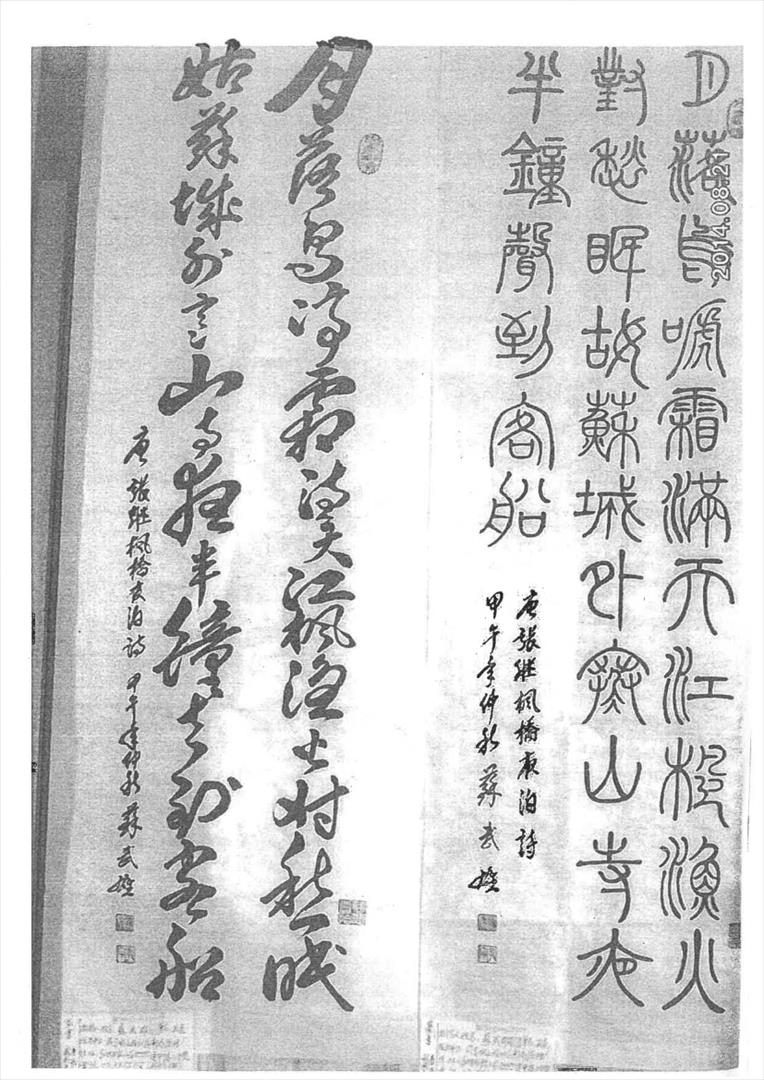 月落烏啼霜滿天江楓漁火
對愁眠姑蘇城外寒山寺夜
半鐘聲到客船
唐張继楓橋夜泊詩
甲午年仲秋 蘇武
月落烏啼霜滿天江楓漁火对愁眠
姑蘇城外寒山寺夜半鐘聲到客船
唐張继楓橋夜泊詩 甲午年仲秋 蘇武